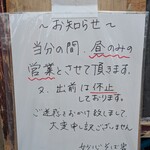 ～お知らせ～
当分の間、昼のみの
営業とさせて頂きます。
又、出前は休止
しております。
ご迷惑とおかけ致しまして
大変申し訳ございません